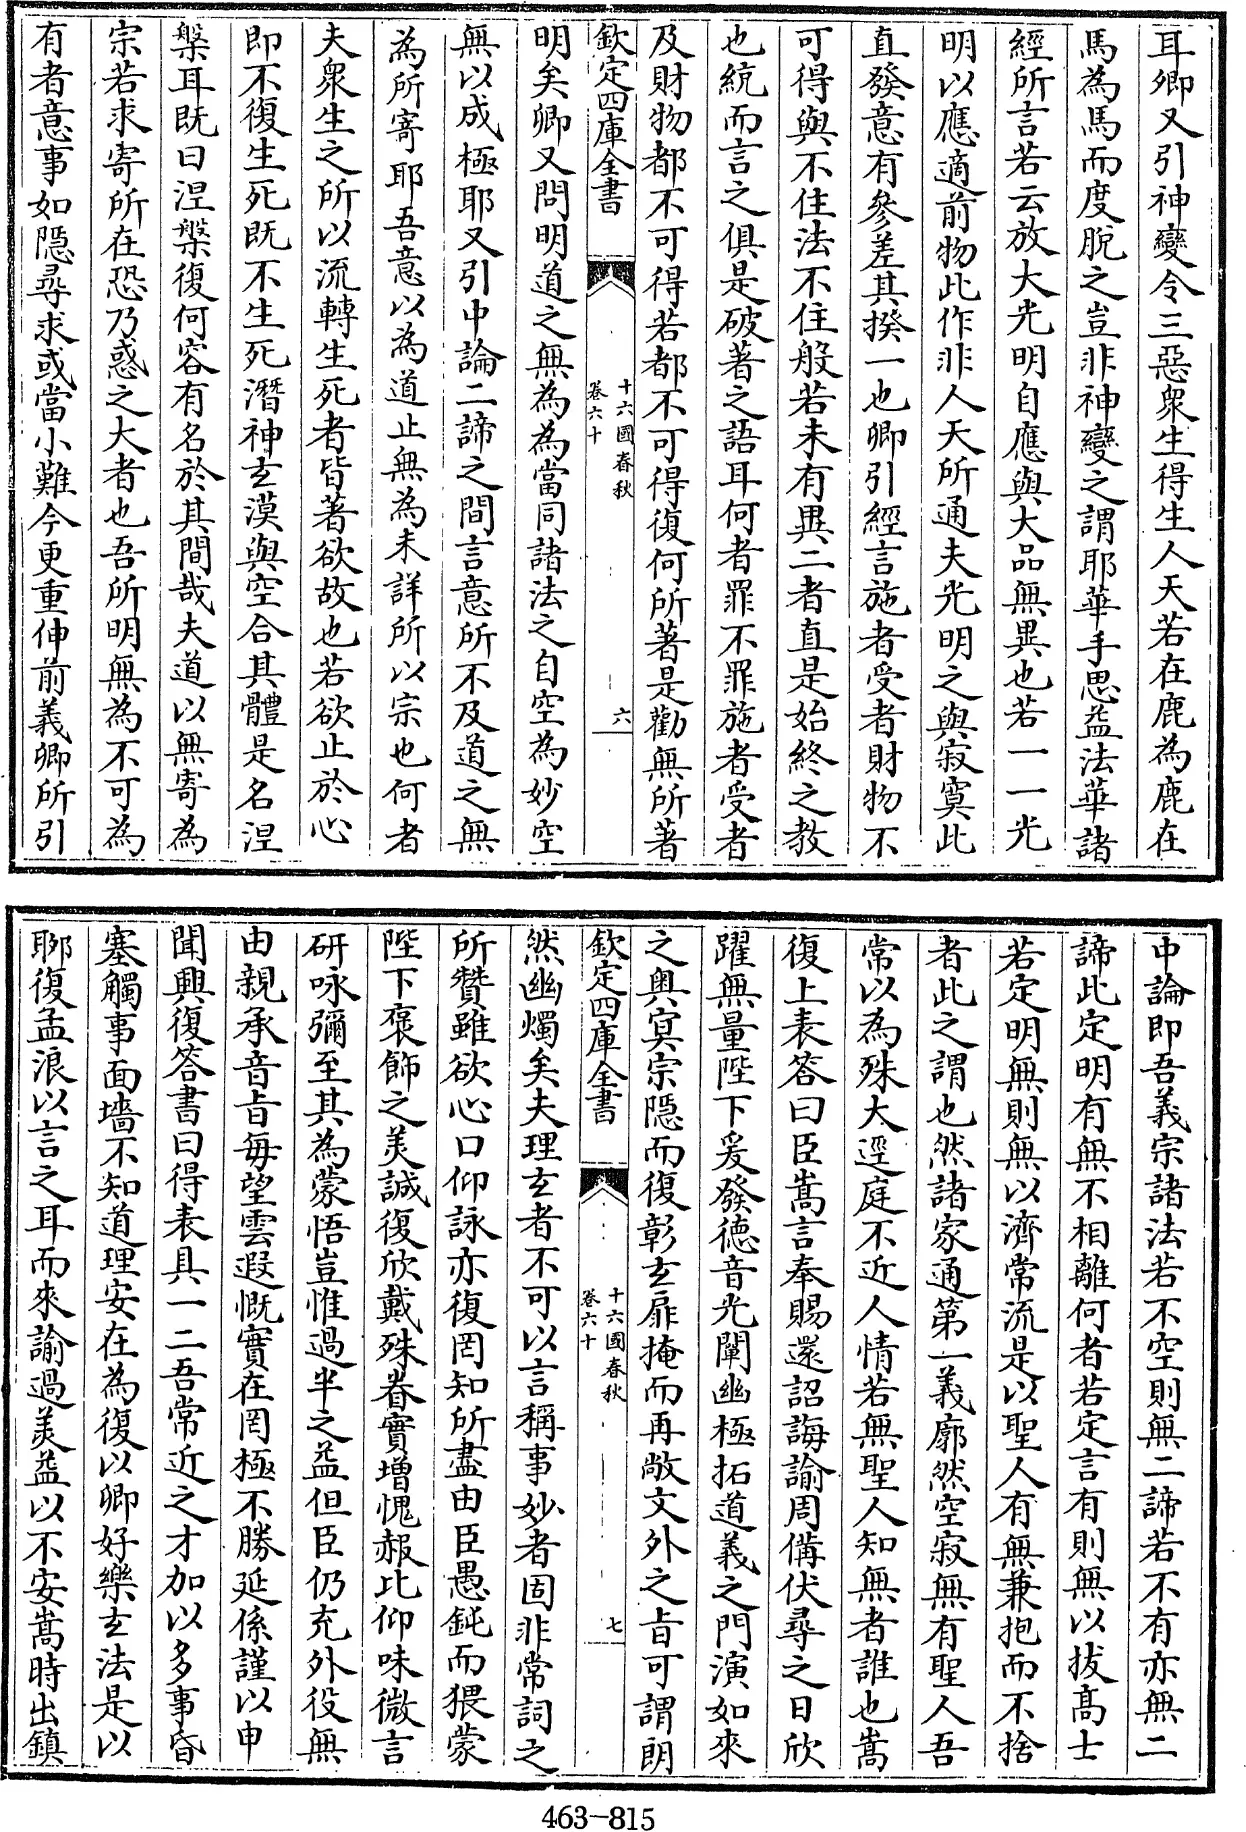 耳卿又引神變令三惡衆生得生人天若在鹿為鹿在
馬為馬而度脫之豈非神變之謂耶華手思益法華諸
經所言若云放大光明自應與大品無異也若一一光
明以應適前物此作非人天所通夫光明之與寂寞此
直發意有參差其揆一也卿引經言施者受者財物不
可得與不住法不住般若未有異二者直是始終之教
也統而言之俱是破著之語耳何者罪不罪施者受者
及財物都不可得若都不可得復何所著是勸無所著
欽定四庫全書
十六國春秋
卷六十
六
明矣卿又問明道之無為為當同諸法之自空為妙空
無以成極耶又引中論二諦之間言意所不及道之無
為所寄耶吾意以為道止無為未詳所以宗也何者
夫衆生之所以流轉生死者皆著欲故也若欲止於心
即不復生死既不生死潛神玄漠與空合其體是名涅
槃耳既曰涅槃復何容有名於其間哉夫道以無寄為
宗若求寄所在恐乃惑之大者也吾所明無為不可為
有者意事如隱尋求或當小難今更重伸前義卿所引
中論即吾義宗諸法若不空則無二諦若不有亦無二
諦此定明有無不相離何者若定言有則無以拔高士
若定明無則無以濟常流是以聖人有無兼抱而不捨
者此之謂也然諸家通第一義廓然空寂無有聖人吾
常以為殊大逕庭不近人情若無聖人知無者誰也嵩
復上表答曰臣嵩言奉賜還詔誨諭周備伏尋之日欣
躍無量陛下爰發德音光闡幽極拓道義之門演如來
之奥㝠宗隱而復彰玄扉掩而再敞文外之旨可謂朗
欽定四庫全書
十六國春秋
卷六十
七
然幽燭矣夫理玄者不可以言稱事妙者固非常詞之
所贊雖欲心口仰詠亦復罔知所盡由臣愚鈍而猥蒙
陛下褒飾之美誠復欣戴殊眷實增愧赧比仰味微言
研咏彌至其為蒙悟豈惟過半之益但臣仍充外役無
由親承音旨每望雲遐慨實在罔極不勝延係謹以申
聞興復答書曰得表具一二吾常近之才加以多事昏
塞觸事面墻不知道理安在為復以卿好樂玄法是以
聊復孟浪以言之耳而來諭過美益以不安嵩時出鎮
463-815